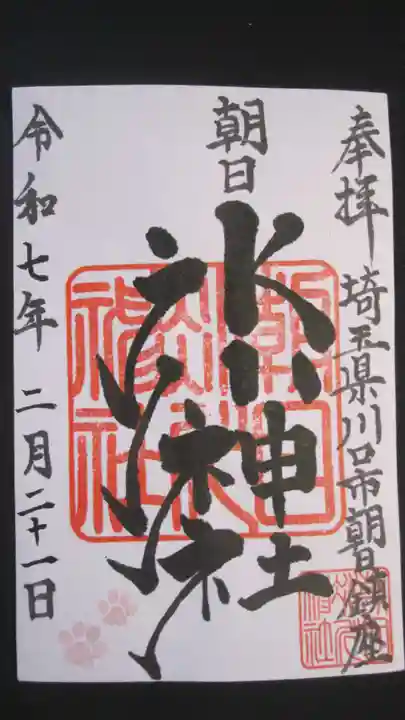 奉拝
埼玉県川口市朝日鎮座
朝日
氷川神社
令和七年 二月二十一日
朝日氷川神社